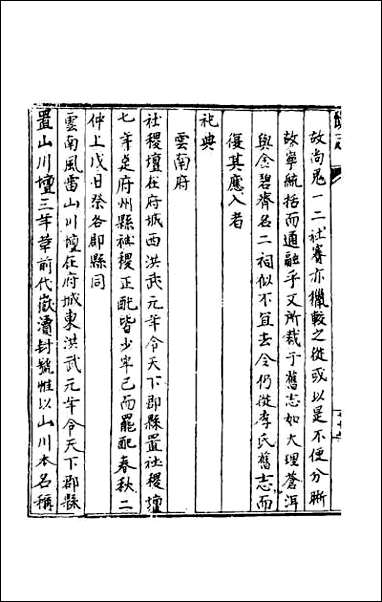 故尚鬼一二社賽亦獵較之從或以是不便分晰
故寧統括而通融乎又所裁于舊志如大理蒼洱
與金碧齊名二祠似不宜去今仍從李氏舊志而
復其應入者
祀典
雲南府
社稷壇在府城西洪武元年令天下郡縣置社稷壇
七年定府州縣社稷正配皆少牢已而罷配春秋二
仲上戊日祭各郡縣同
雲南風雷山川壇在府城東洪武元年令天下郡縣
置山川壇三年革前代嶽瀆封號惟以山川本名稱